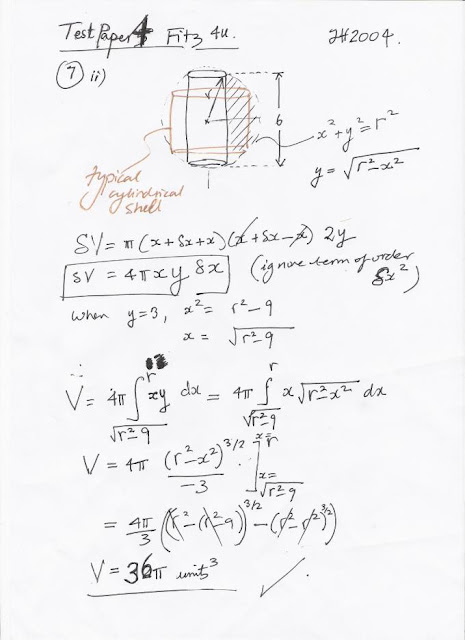 Test Paper 4 Fitz 4u. JH2004.
7 ii)
6
x² + y² = r²
y = √(r²-x²)
typical
cylindrical
shell
δV = π(x + δx + x)(x + δx - x) 2y
δV = 4πxy δx (ignore term of order δx²)
when y=3, x² = r² - 9
x = √(r²-9)
∴ V = 4π ∫_{√(r²-9)}^{r} xy dx = 4π ∫_{√(r²-9)}^{r} x √(r²-x²) dx
V = 4π (r²-x²)^{3/2} / -3 ]_{x=√(r²-9)}^{x=r}
= 4π/3 ((r²-(r²-9))^{3/2} - (r²-r²)^{3/2})
V = 36π units³